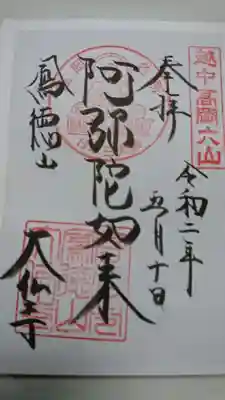 越中高岡六山
奉拝
令和二年
五月十日
阿弥陀如来
鳳徳山
大仙寺